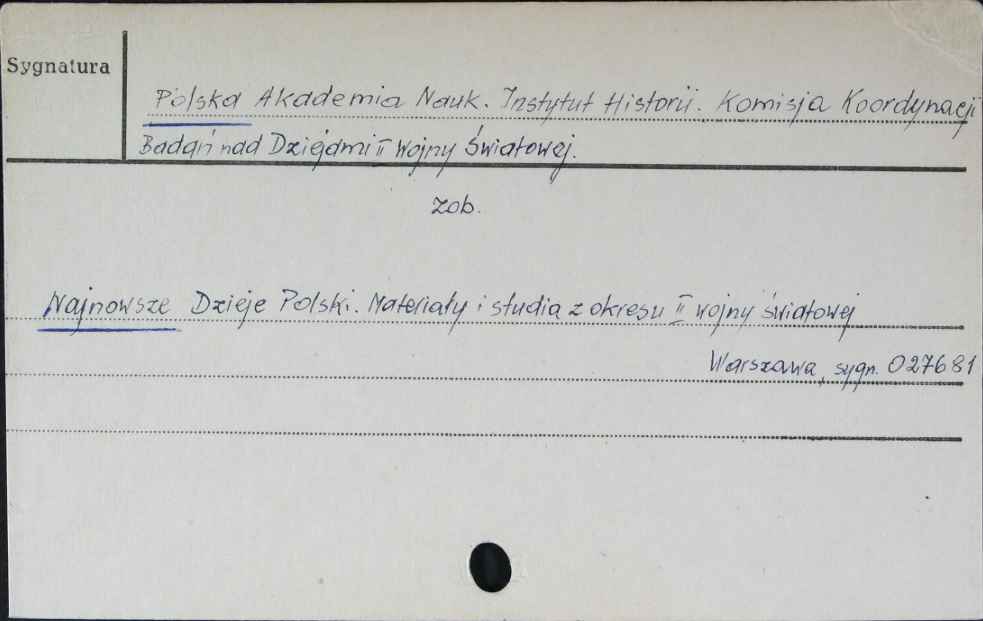 Sygnatura
Polska Akademia Nauk. Instytut Historii. Komisja Koordynacji
Badań nad Dziejami II Wojny Światowej.
zob.
Najnowsze Dzieje Polski. Materiały i studia z okresu II wojny światowej
Warszawa, sygn. 027681